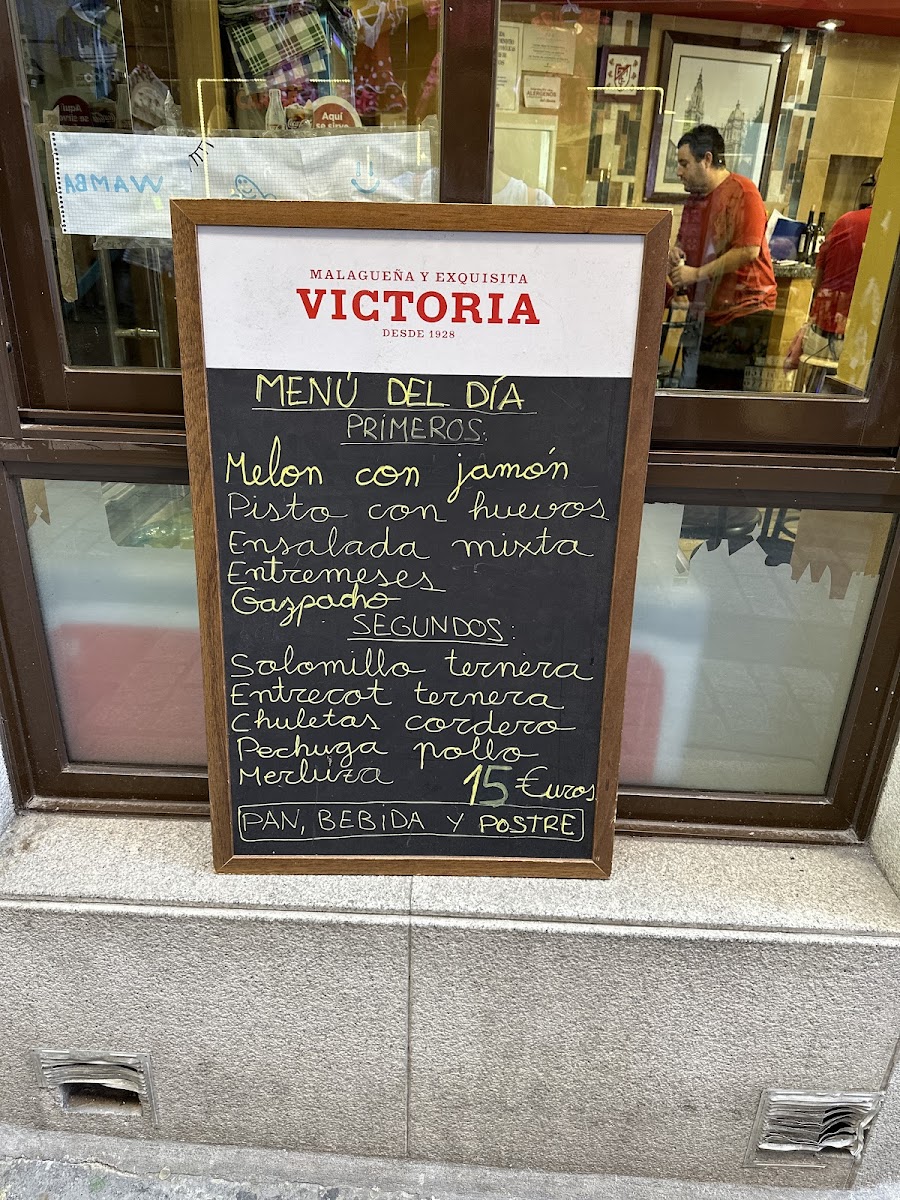 Aquí
se sirve
Aquí
se sirve
WAMBA
ALÉRGENOS
MALAGUEÑA Y EXQUISITA
VICTORIA
DESDE 1928
MENÚ DEL DÍA
PRIMEROS:
Melon con jamón
Pisto con huevos
Ensalada mixta
Entremeses
Gazpacho
SEGUNDOS:
Solomillo ternera
Entrecot ternera
Chuletas cordero
Pechuga pollo
Merluza 15 €uros
PAN, BEBIDA Y POSTRE